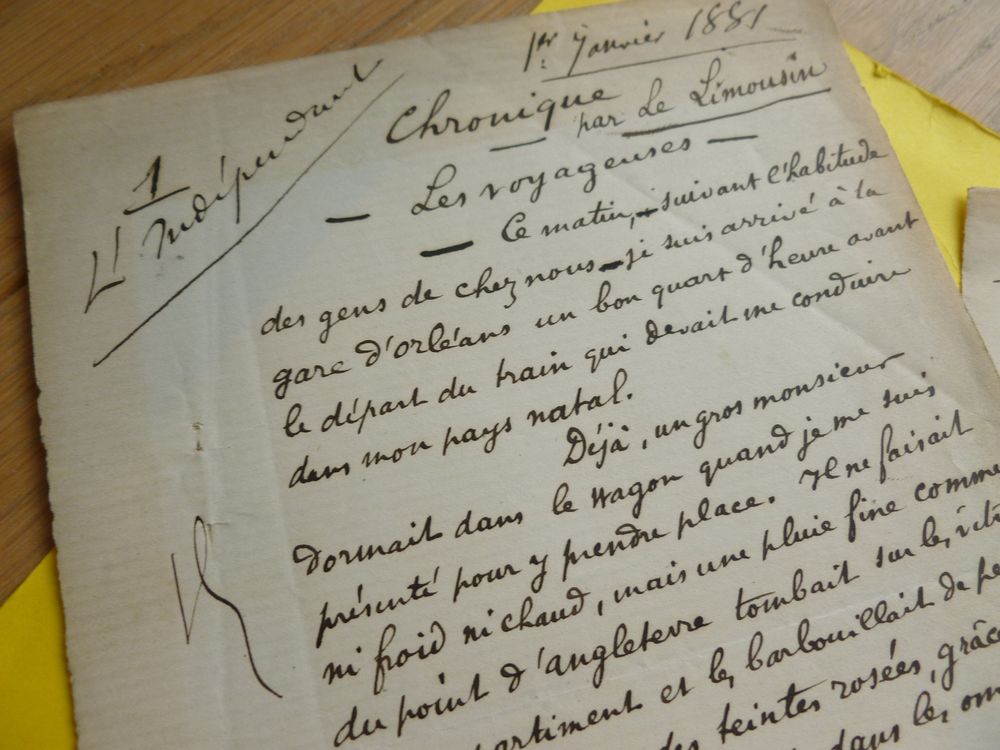 1er Janvier 1881
1
L'Indépendant
Chronique
par Le Limousin
— Les voyageuses —
— Ce matin, - suivant l'habitude
des gens de chez nous - je suis arrivé à la
gare d'orléans un bon quart d'heure avant
le départ du train qui devait me conduire
dans mon pays natal.
Déjà, un gros monsieur
dormait dans le wagon quand je me suis
présenté pour y prendre place. Il ne faisait
ni froid ni chaud, mais une pluie fine comme
du point d'angleterre tombait sur les vitr
artiment et les barbouillait de pe
des teintes rosées, grâce
dans les om